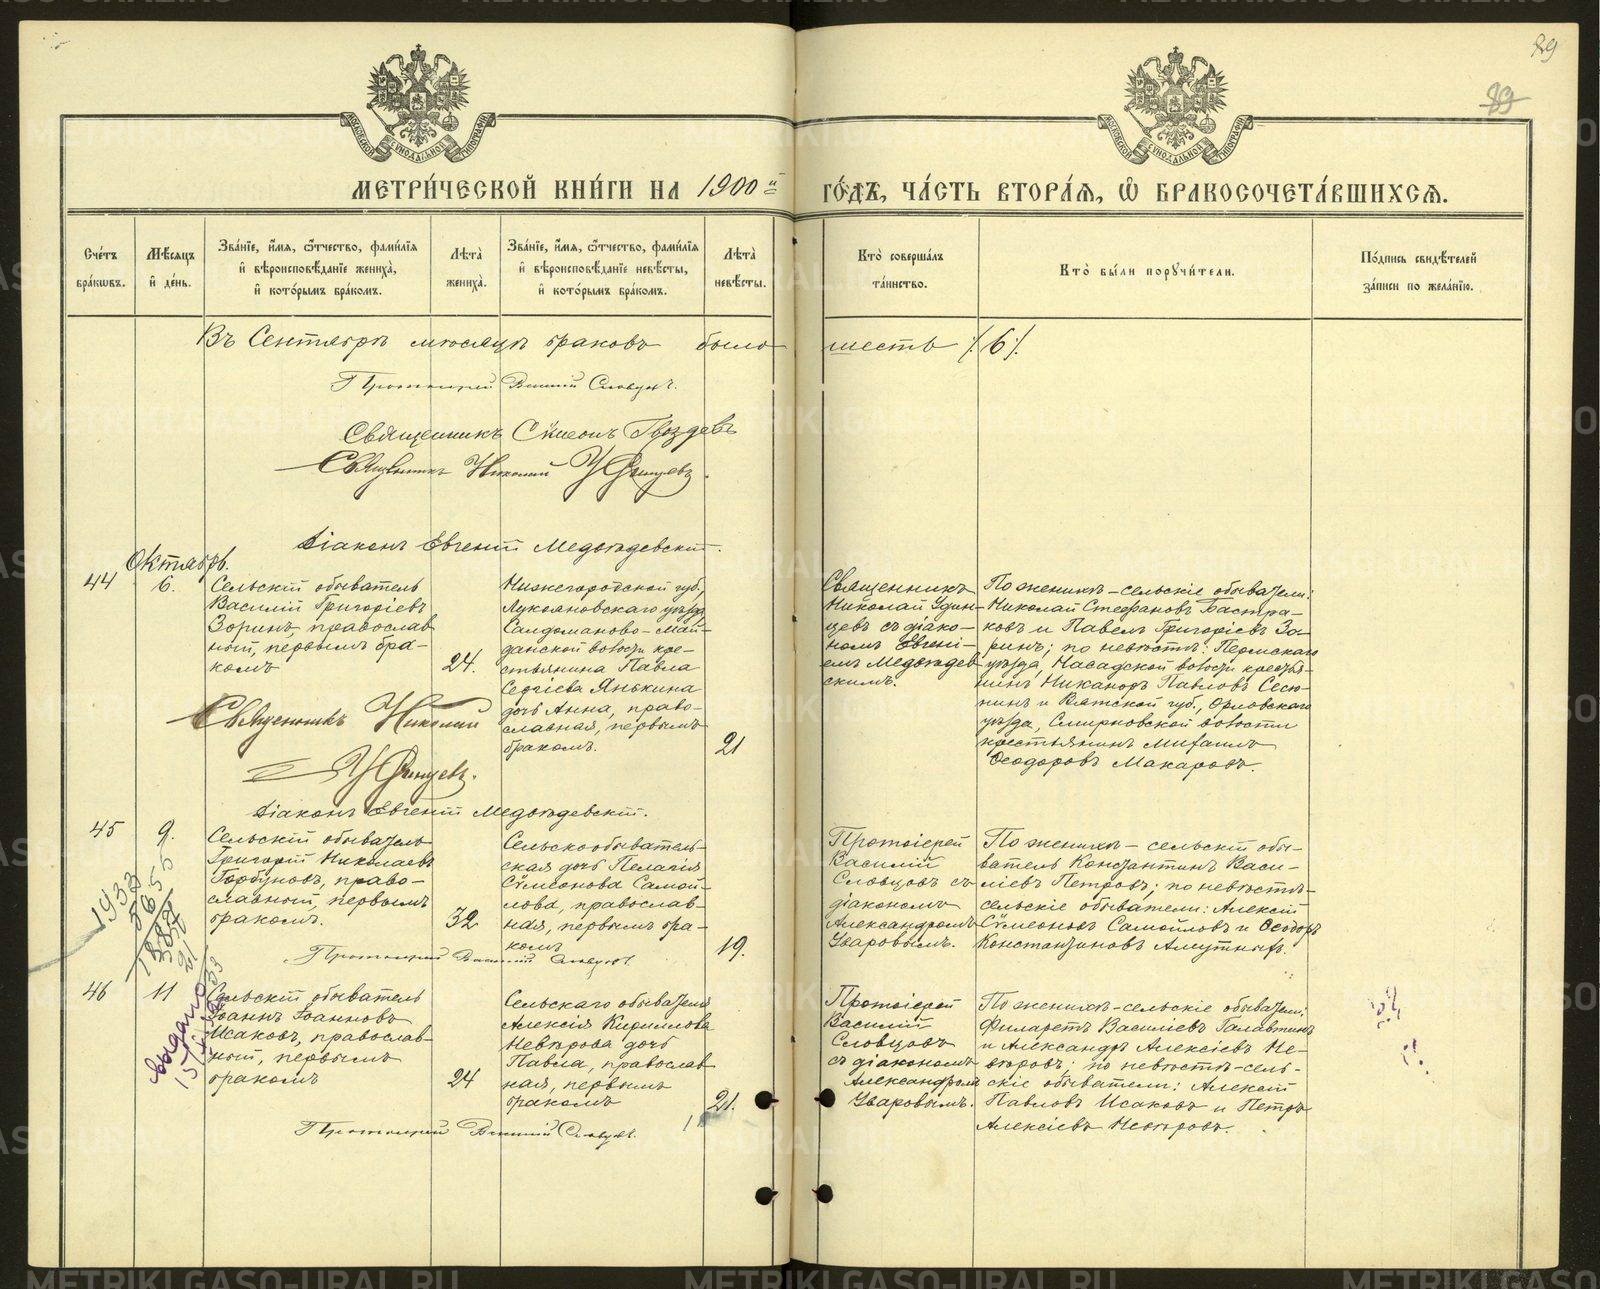 89
89
МОСКОВСКОЙ СѴНОДАЛЬНОЙ ТИПОГРАФІИ
МОСКОВСКОЙ СѴНОДАЛЬНОЙ ТИПОГРАФІИ
МЕТРИ́ЧЕСКОЙ КНИ́ГИ НА 1900й ГО́ДЪ, ЧА́СТЬ ВТОРА́Ѧ, Ѡ҆ БРАКОСОЧЕТА́ВШИХСѦ.
Сче́тъ
бра́кωвъ.
Мѣ́сяцъ
и҆ де́нь.
Зва́нїе, и҆́мѧ, ѻ҆́тчество, фами́лїѧ
и҆ вѣроисповѣ́данїе жениха̀,
и҆ кото́рымъ бра́комъ.
Лѣ́та
жениха̀.
Зва́нїе, и҆́мѧ, ѻ҆́тчество, фами́лїѧ
и҆ вѣроисповѣ́данїе невѣ́сты,
и҆ кото́рымъ бра́комъ.
Лѣ́та
невѣ́сты.
Кто̀ соверша́лъ
та́инство.
Кто̀ бы́ли порꙋчи́тели.
По́дпись свидѣ́телей
за́писи по жела́нїю.
Въ Сентябрѣ мѣсяцѣ браковъ было шесть /.6./
Протоіерей Василій Словцовъ.
Священникъ Сѵмеонъ Гвоздевъ
Священникъ Николай Удинцевъ.
Діаконъ Евгеній Медвѣдевскій.
Октябрь.
44
6.
Сельскій обыватель
Василій Григоріевъ
Зоринъ, православ
ный, первымъ бра-
комъ
24.
Нижегородской губ.,
Лукояновскаго уѣзда,
Салдоманово-Май-
данской волости кре-
стьянина Павла
Сергіева Янькина
дочь Анна, право-
славная, первымъ
бракомъ.
21
Священникъ
Николай Удин-
цевъ съ діако-
номъ Евгені-
емъ Медвѣдев
скимъ.
По женихѣ - сельскіе обыватели:
Николай Стефановъ Бастра-
ковъ и Павелъ Григоріевъ Зо-
ринъ; по невѣстѣ: Пермскаго
уѣзда, Насадской волости крестья-
нинъ Никаноръ Павловъ Сесю-
нинъ и Вятской губ., Орловскаго
уѣзда, Смирновской волости
крестьянинъ Михаилъ
Ѳеодоровъ Макаровъ.
Священникъ Николай
Удинцевъ.
Діаконъ Евгеній Медвѣдевскій.
45
9.
Сельскій обыватель
Григорій Николаевъ
Горбуновъ, право-
славный, первымъ
бракомъ.
32
Сельскообыватель-
ская дочь Пелагія
Сѵмеонова Самой-
лова, православ-
ная, первымъ бра-
комъ
19.
Протоіерей
Василій
Словцовъ съ
діакономъ
Александромъ
Уваровымъ.
По женихѣ - сельскій обы-
ватель Константинъ Васи-
ліевъ Петровъ; по невѣстѣ-
сельскіе обыватели: Алексій
Сѵмеоновъ Самойловъ и Ѳеодоръ
Константиновъ
Протоіерей Василій Словцовъ.
1933
21
выдано
46
11
Сельскій обыватель
Іоаннъ Іоанновъ
Исаковъ, православ-
ный, первымъ
бракомъ
24
Сельскаго обывателя
Алексія Кириллова
Невѣрова дочь
Павла, православ
ная, первымъ
бракомъ
21.
Протоіерей
Василій
Словцовъ
съ діакономъ
Александромъ
Уваровымъ.
По женихѣ - сельскіе обыватели:
Филаретъ Василіевъ Галавтинъ
и Александръ Алексіевъ Не-
вѣровъ; по невѣстѣ - сель-
скіе обыватели: Алексій
Павловъ Исаковъ и Петръ
Алексіевъ Невѣровъ.
Протоіерей Василій Словцовъ.
METRIKI.GASO-URAL.RU